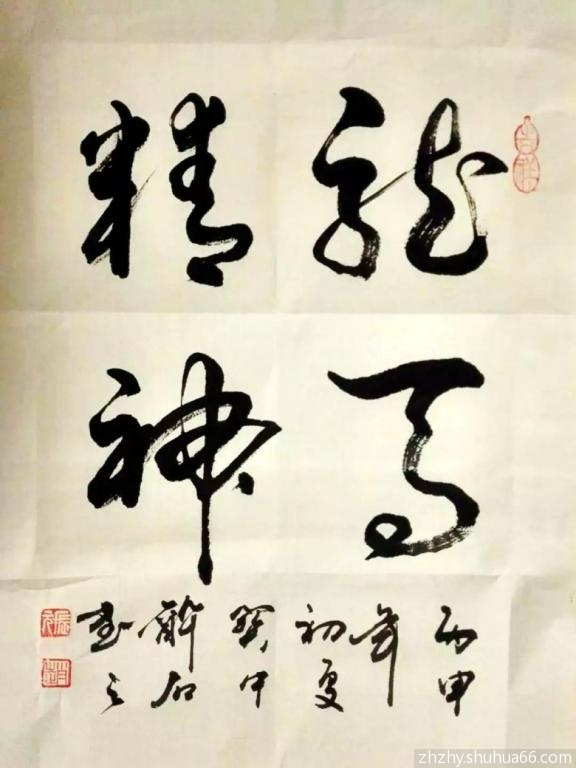 龍馬
精神
丙申
年
初夏
石
書之
吉祥
zhzhy.shuhua66.com